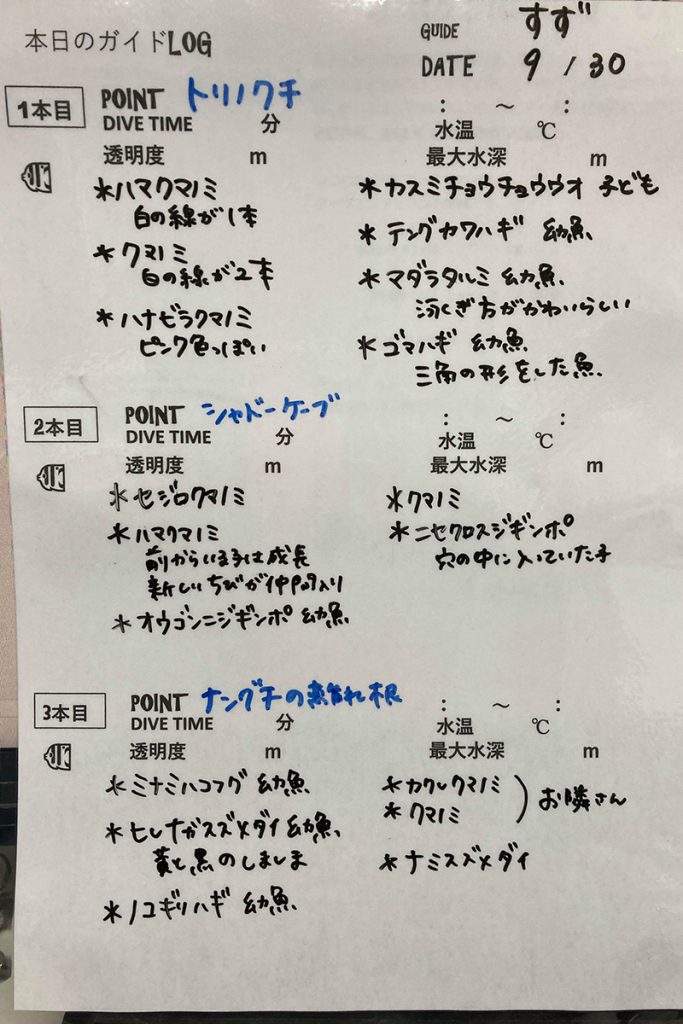 本日のガイドLOG
GUIDE すず
DATE 9 / 30
1本目 POINT トリノクチ
DIVE TIME 分 : ～ :
水温 ℃
透明度 m 最大水深 m
*ハマクマノミ
白の線が1本
*クマノミ
白の線が2本
*ハナビラクマノミ
ピンク色っぽい
*カスミチョウチョウウオ 子ども
*テングカワハギ 幼魚
*マダラタルミ 幼魚
泳ぎ方がかわいらしい
*ゴマハギ 幼魚
三角の形をした魚
2本目 POINT シャドーケーブ
DIVE TIME 分 : ～ :
水温 ℃
透明度 m 最大水深 m
*セジロクマノミ
*ハマクマノミ
前からいる子は成長
新しいちびが仲間入り
*オウゴンニジギンポ 幼魚
*クマノミ
*ニセクロスジギンポ
穴の中に入っていた子
3本目 POINT ナングチの離れ根
DIVE TIME 分 : ～ :
水温 ℃
透明度 m 最大水深 m
*ミナミハコフグ 幼魚
*ヒレナガスズメダイ 幼魚
黄と黒のしましま
*ノコギリハギ 幼魚
*カクレクマノミ
*クマノミ
お隣さん
*ナミスズメダイ